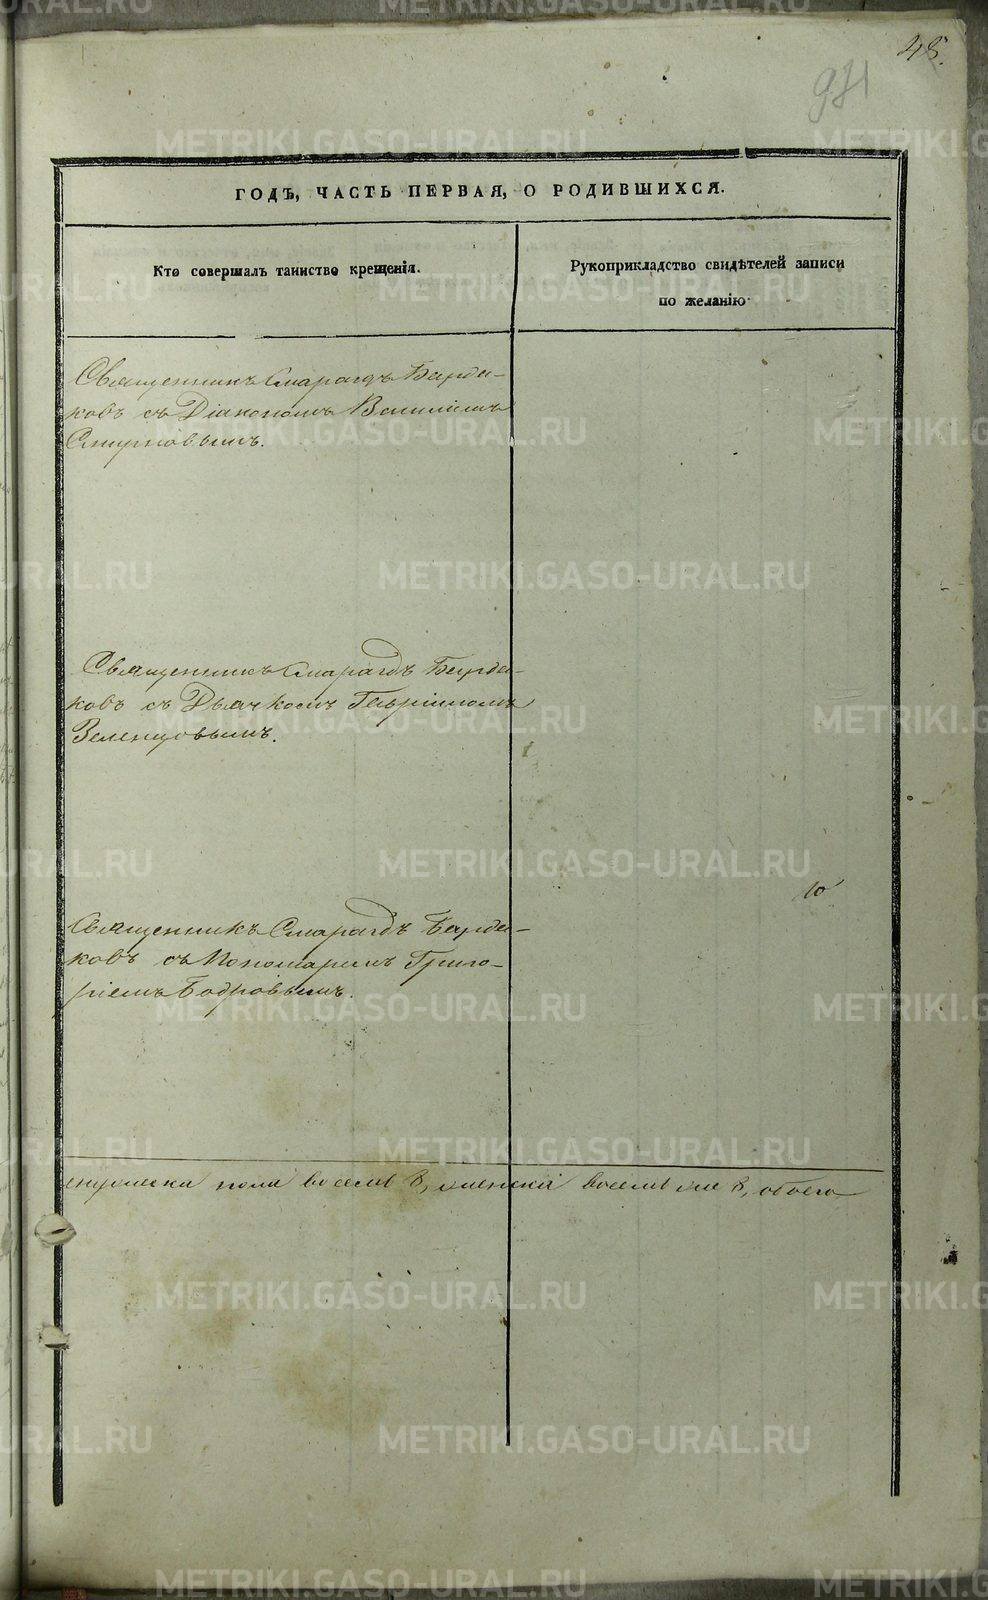 48.
971
ГОДЪ, ЧАСТЬ ПЕРВАЯ, О РОДИВШИХСЯ.
Кто совершалъ таинство крещенія.
Рукоприкладство свидѣтелей записи
по желанію
Священникъ Смарагдъ Бурда-
ковъ съ Діакономъ Василіемъ
Смирновымъ.
Священникъ Смарагдъ Бурда-
ковъ съ Дьячкомъ Гавріиломъ
Зеленцовымъ.
Священникъ Смарагдъ Бурда-
ковъ съ Пономаремъ Григо-
ріемъ Бодровымъ.
пола восемь 8, женска восемь же 8, обоего
METRIKI.GASO-URAL.RU